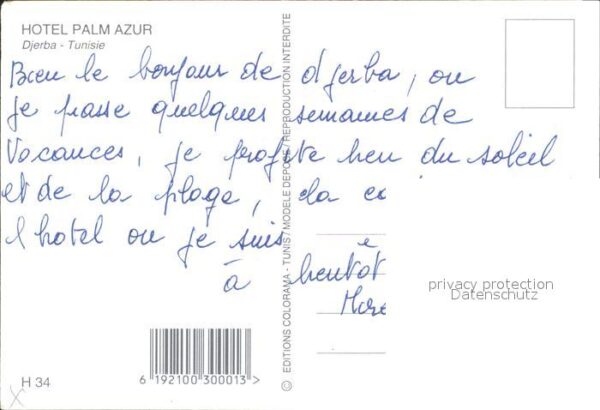 HOTEL PALM AZUR
Djerba - Tunisie
Bien le bonjour de djerba, ou
je passe quelques semaines de
vacances, je profite bien du soleil
et de la plage, la
l hotel ou je suis
à bientot
privacy protection
Datenschutz
© EDITIONS COLORAMA - TUNIS / MODELE DEPOSE / REPRODUCTION INTERDITE
6 192100 300013 >
H 34